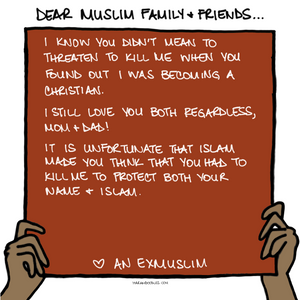 DEAR MUSLIM FAMILY & FRIENDS...
I KNOW YOU DIDN'T MEAN TO
THREATEN TO KILL ME WHEN YOU
FOUND OUT I WAS BECOMING A
CHRISTIAN.
I STILL LOVE YOU BOTH REGARDLESS,
MOM & DAD!
IT IS UNFORTUNATE THAT ISLAM
MADE YOU THINK THAT YOU HAD TO
KILL ME TO PROTECT BOTH YOUR
NAME & ISLAM.
♡ AN EXMUSLIM